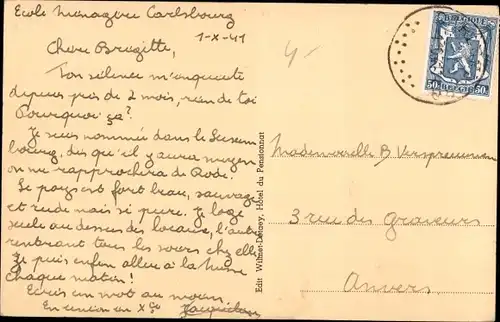 Ecole Ménagère Carlsbourg
1-X-41
Chère Brigitte,
Ton silence m'inquiète
depuis près de 2 mois, rien de toi
Pourquoi ça?
Je suis nommée dans le Luxem
bourg, dès qu'il y aura moyen
on me rapprochera de Rode.
Le pays est fort beau, sauvage
et rude mais si pure. Je loge
seule au dessus des locaux, l'autre
rentrant tous les soirs chez elle
Je puis enfin aller à la messe
chaque matin!
Ecris un mot au moins
En union en X
Edit Wilmet-Demey, Hôtel du Pensionnat
BELGIQUE
50c 50c
Mademoiselle B
3 rue des graveurs
Anvers